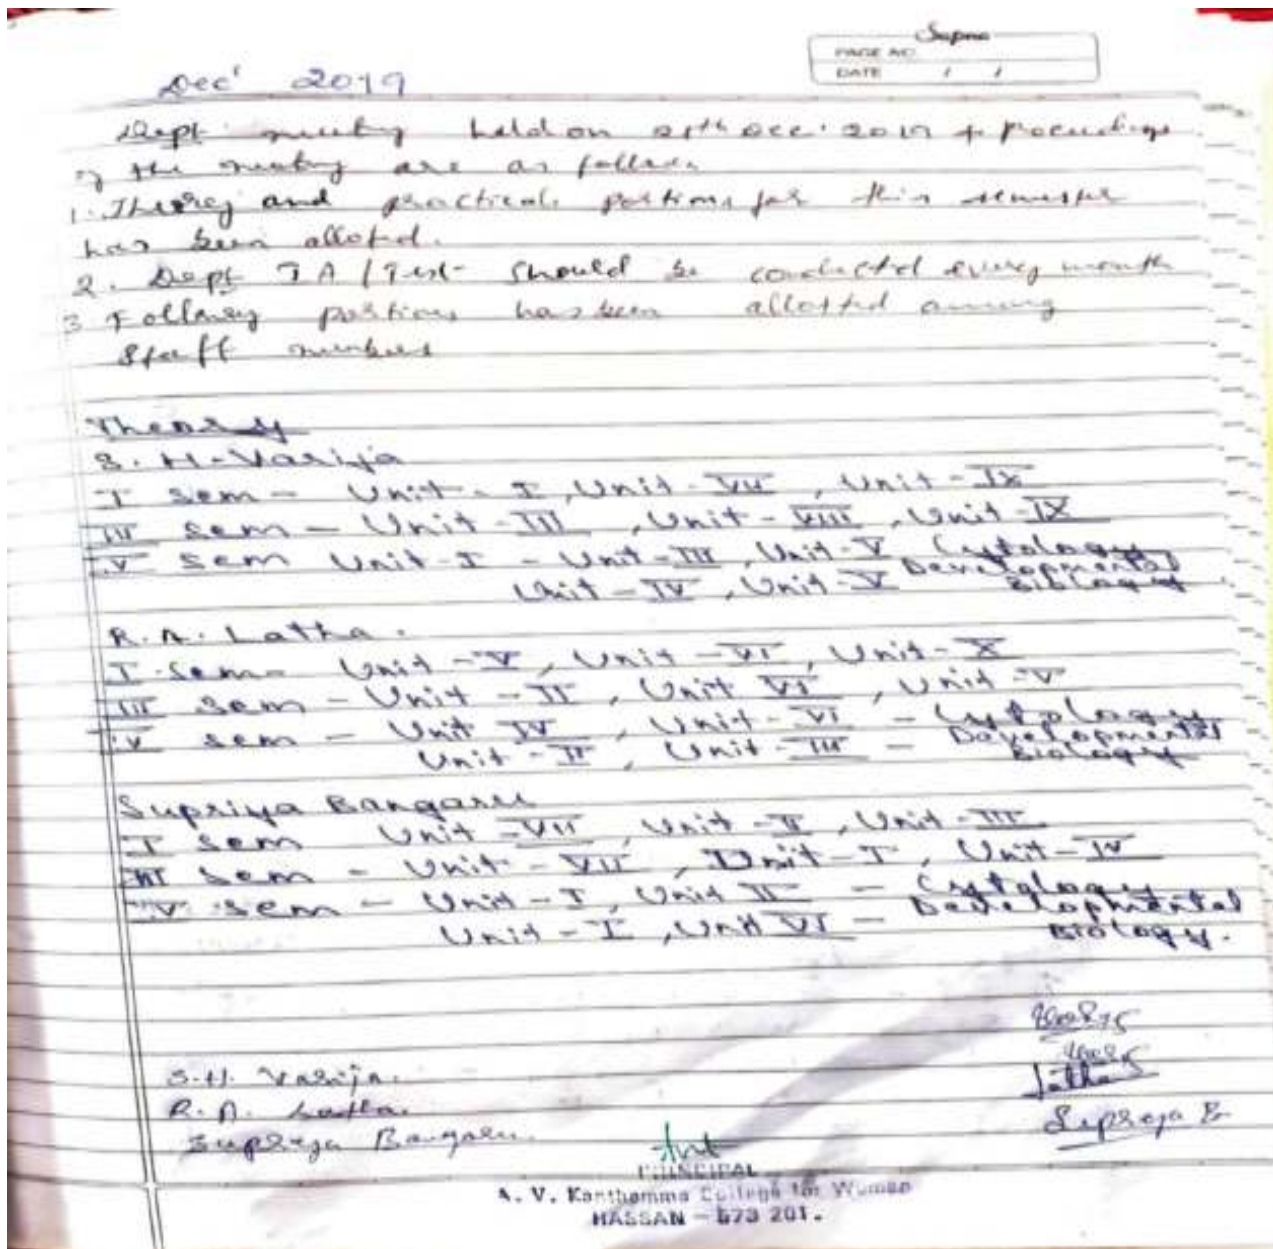 Supna
PAGE NO.
DATE / /
Dec' 2019
Dept meeting held on Dec. 2019 + Proceedings
of the meeting are as follows
1. Theorey and practical portions for this semester
has been alloted.
2. Dept IA / Test should be conducted every month
3 Following portions has been allotted among
Staff members
Theory
S. H. Varija
I Sem - Unit - I, Unit - VII, Unit - IX
III Sem - Unit - III, Unit - VIII, Unit - IX
V Sem Unit - I - Unit - III, Unit - V Cytology
Developmental
Unit - IV, Unit - V Biology
R. A. Latha.
I Sem - Unit - V, Unit - VI, Unit - X
III Sem - Unit - II, Unit VI, Unit - V
V Sem - Unit IV, Unit - VI - Cytology
Unit - II, Unit - III - Developmental
Biology
Supriya Bangaru
I Sem Unit - VII, Unit - II, Unit - III
III Sem - Unit - VII, Unit - I, Unit - IV
V Sem - Unit - I, Unit II - Cytology
Unit - I, Unit VI - Developmental
Biology.
S.H. Varija.
R. A. Latha.
Latha
Supreja Bangaru.
Supreja B
PRINCIPAL
A. V. Kanthamma College for Women
HASSAN - 573 201.